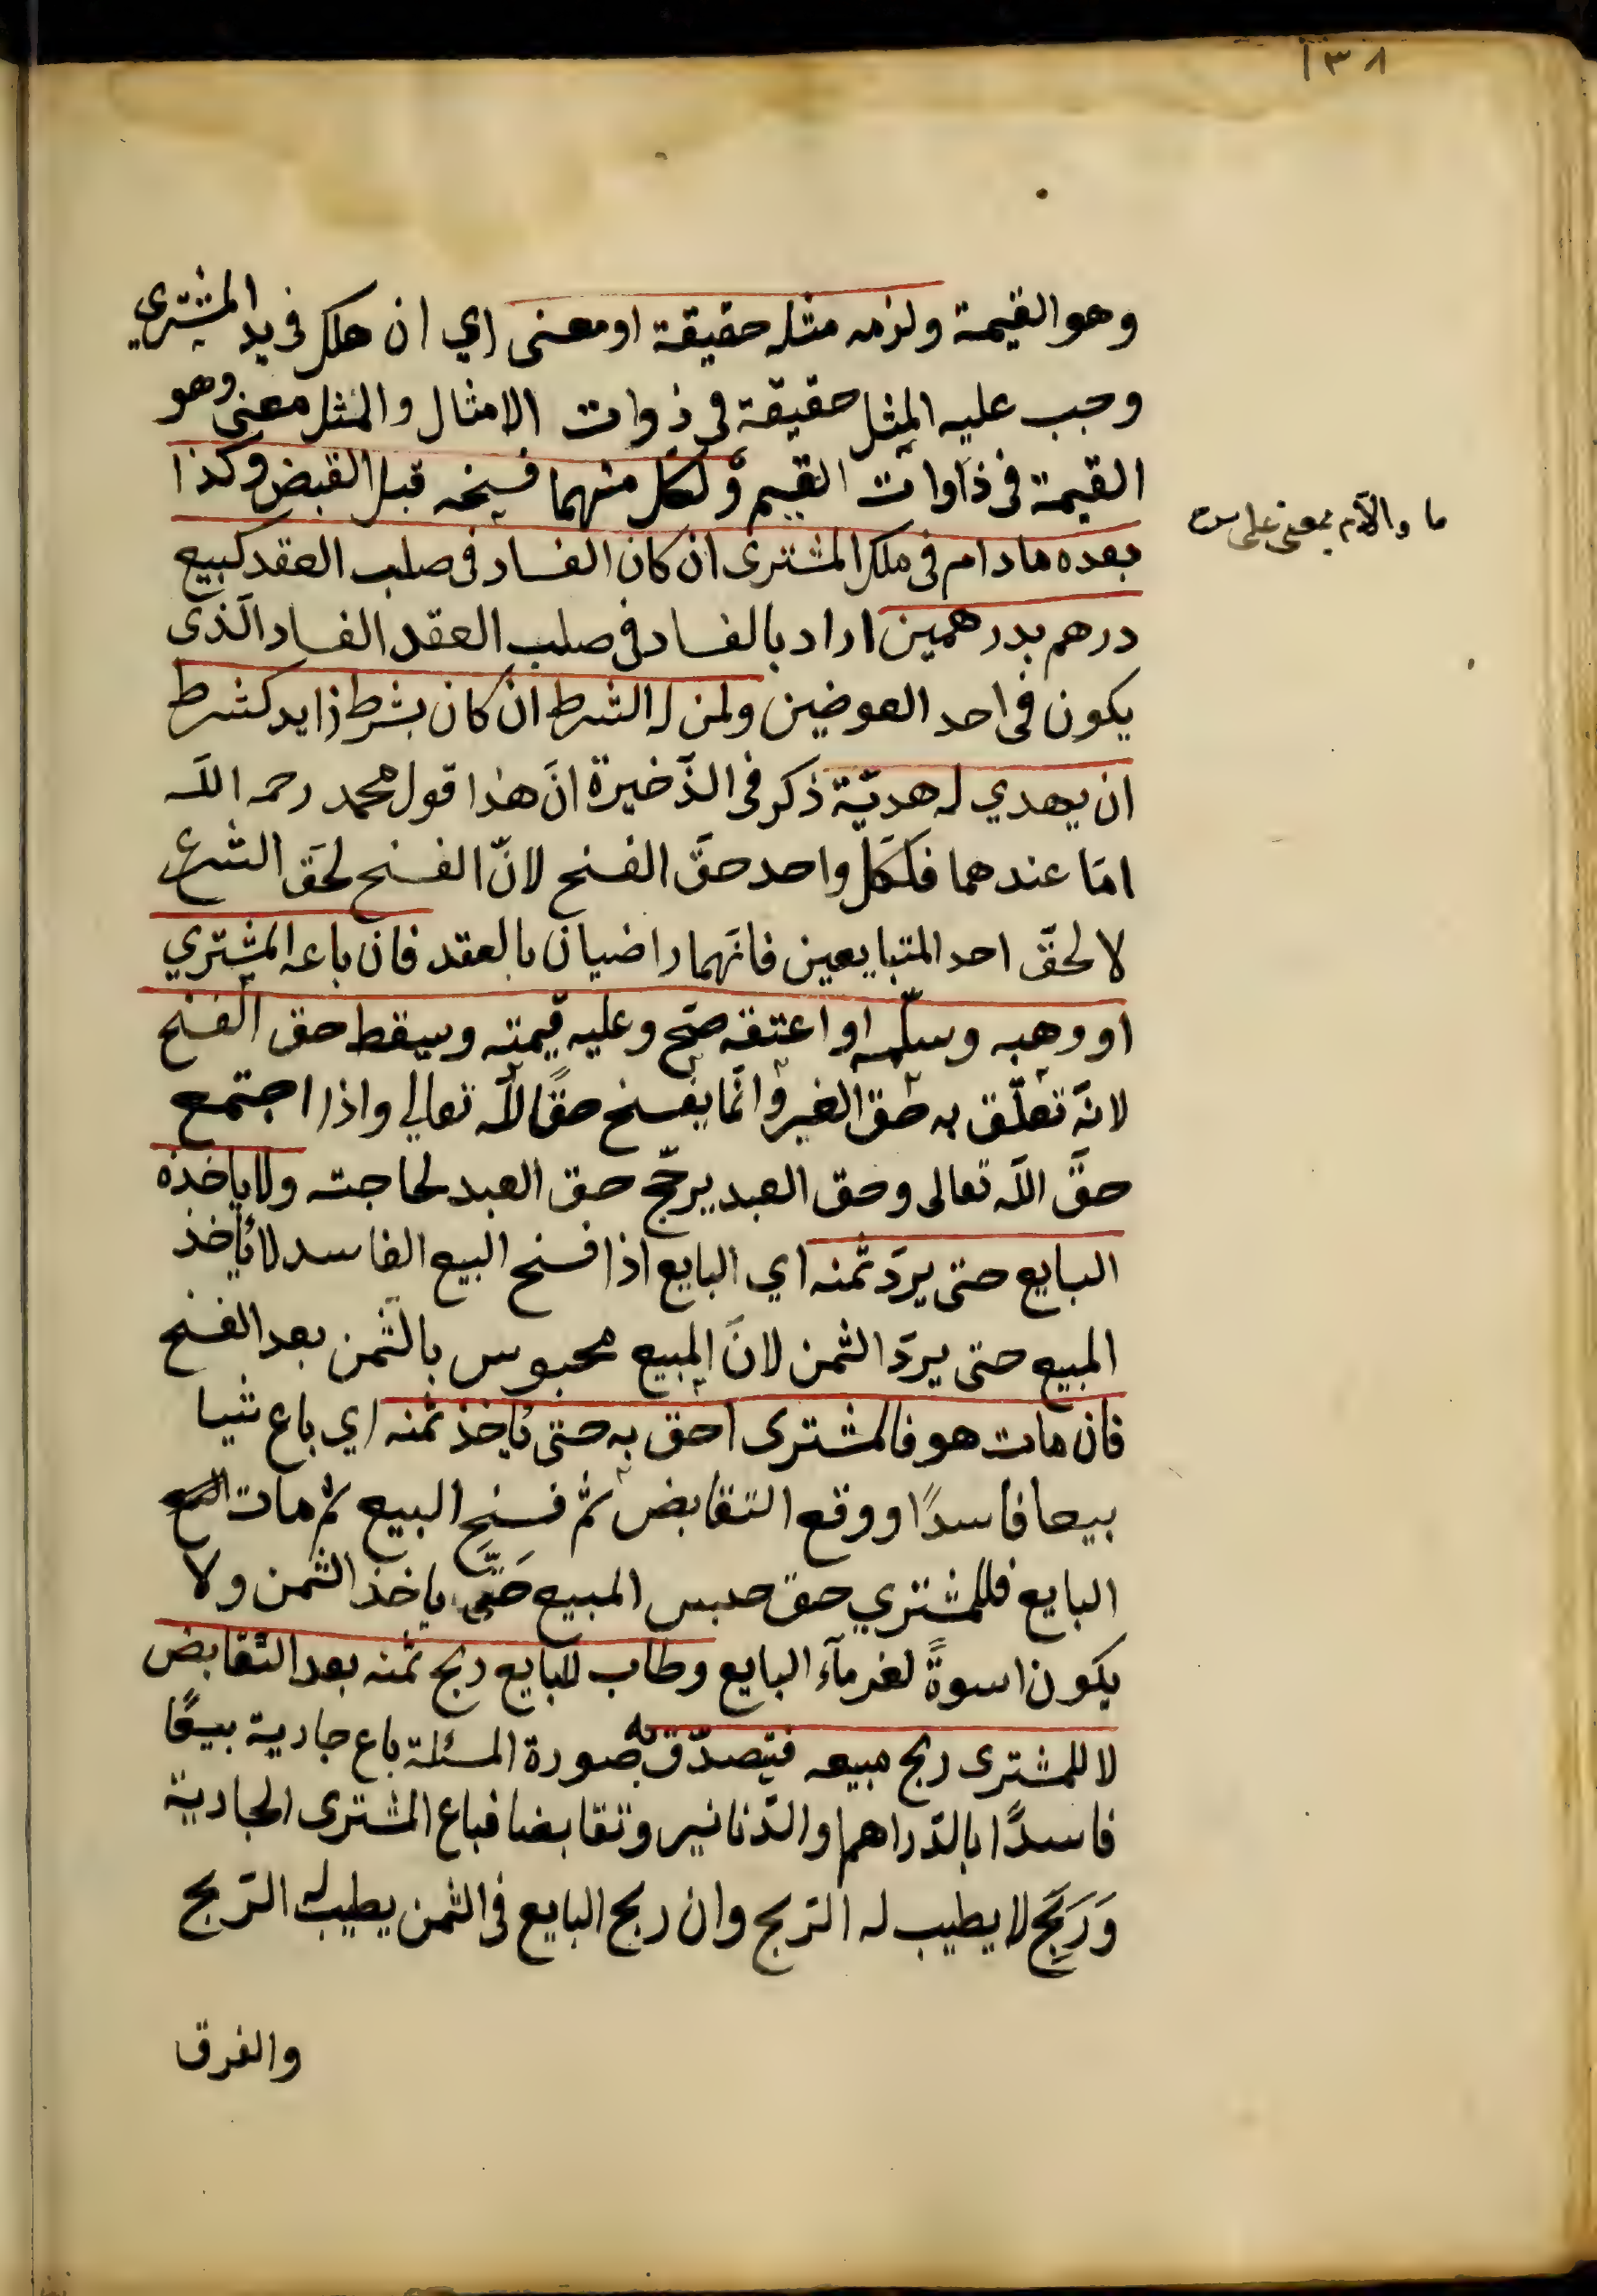 ١٣٨
وهو القيمة ولزمه مثله حقيقة او معنى اي ان هلك في يد المشتري
وجب عليه المثل حقيقة في ذوات الامثال والمثل معنى وهو
القيمة في ذاوات القيم ولكل منهما فسخه قبل القبض وكذا
ما واللام بمعنى على
بعده مادام في ملك المشترى ان كان الفساد في صلب العقد كبيع
درهم بدرهمين اراد بالفساد في صلب العقد الفساد الّذى
يكون في احد العوضين ولمن له الشرط ان كان بشرط زايد كشرط
ان يهدي له هديّة ذكر في الذّخيرة انّ هذا قول محمد رحمه اللّه
امّا عندهما فلكلّ واحد حقّ الفسخ لانّ الفسخ لحقّ الشرع
لا لحقّ احد المتبايعين فانّهما راضيان بالعقد فان باعه المشتري
او وهبه وسلّمه او اعتقه صحّ وعليه قيمته وسقط حق الفسخ
لانّه تعلّق به حق الغير وانّما يفسخ حقًا للّه تعالي واذا اجتمع
حقّ اللّه تعالى وحق العبد يرجّح حق العبد لحاجته ولا ياخذه
البايع حتى يردّ ثمنه اي البايع اذا فسخ البيع الفاسد لا يأخذ
المبيع حتى يردّ الثمن لانّ المبيع محبوس بالثّمن بعد الفسخ
فان مات هو فالمشترى احق به حتى يأخذ ثمنه اي باع شيا
بيعا فاسدًا ووقع التقابض ثمّ فسخ البيع ثم مات
البايع فللمشتري حق حبس المبيع حَتّى ياخذ الثمن ولا
يكون اسوةً لغرمآء البايع وطاب للبايع ربح ثمنه بعد التّقابض
لا للمشترى ربح مبيعه فيتصدّق به صورة المسئلة باع جارية بيعًا
فاسدًا بالدّراهم او الدّنانير وتقابضا فباع المشترى الجارية
وَرَبِحَ لا يطيب له الرّبح وان ربح البايع في الثمن يطيب له الرّبح
والفرق